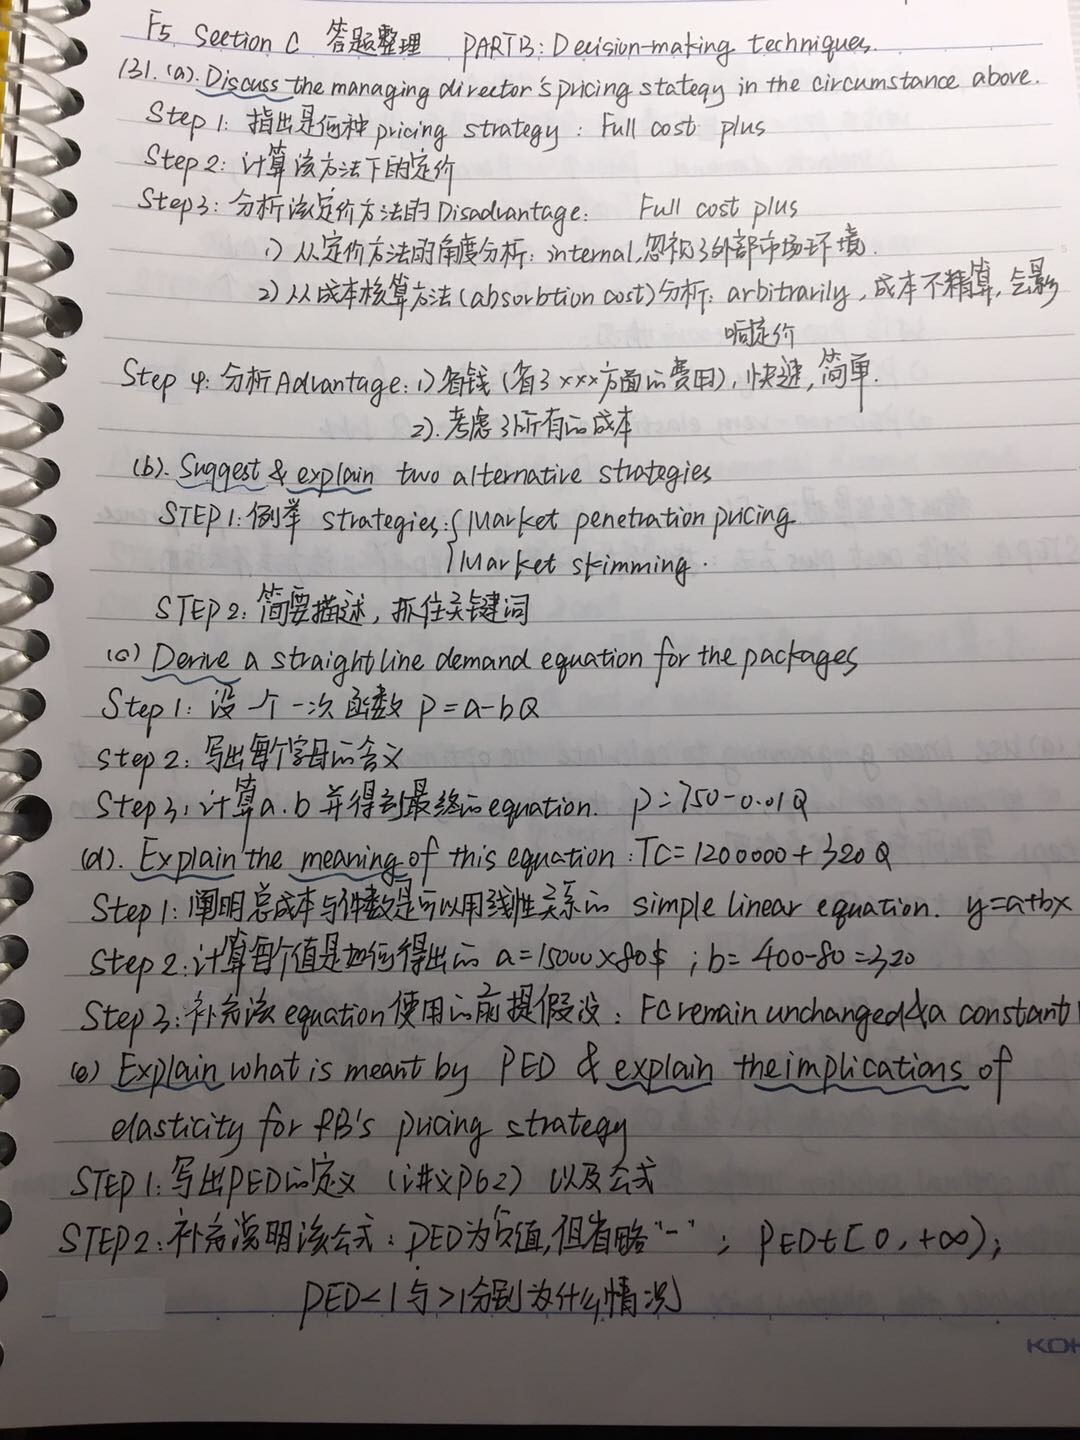 F5 Section C 答题整理 PART B: Decision-making techniques.
131. (a). Discuss the managing director's pricing stategy in the circumstance above.
Step 1: 指出是何种 pricing strategy : Full cost plus
Step 2: 计算该方法下的定价
Step 3: 分析该定价方法的 Disadvantage: Full cost plus
1) 从定价方法的角度分析: internal, 忽视了外部市场环境.
2) 从成本核算方法 (absorbtion cost) 分析: arbitrarily, 成本不精算, 会影
响定价
Step 4: 分析 Advantage: 1) 省钱 (省了×××方面的费用), 快速, 简单.
2). 考虑了所有的成本
(b). Suggest & explain two alternative strategies
STEP 1: 例举 strategies: { Market penetration pricing
Market skimming.
STEP 2: 简要描述, 抓住关键词
(c) Derive a straight line demand equation for the packages
Step 1: 设一个一次函数 P=a-bQ
Step 2: 写出每个字母的含义
Step 3: 计算a.b 并得到最终的 equation. P=750-0.01Q
(d). Explain the meaning of this equation: TC=1200000+320Q
Step 1: 阐明总成本与件数是可以用线性关系的 simple linear equation. y=a+bx
Step 2: 计算每个值是如何得出的 a=15000×80$ ; b=400-80=320
Step 3: 补充该 equation 使用的前提假设: FC remain unchanged & a constant
(e) Explain what is meant by PED & explain the implications of
elasticity for RB's pricing strategy
STEP 1: 写出PED的定义 (讲义P62) 以及公式
STEP 2: 补充说明该公式: PED为负值, 但省略"-" ; PED∈[0, +∞);
PED<1 与 >1 分别为什么情况
KOK